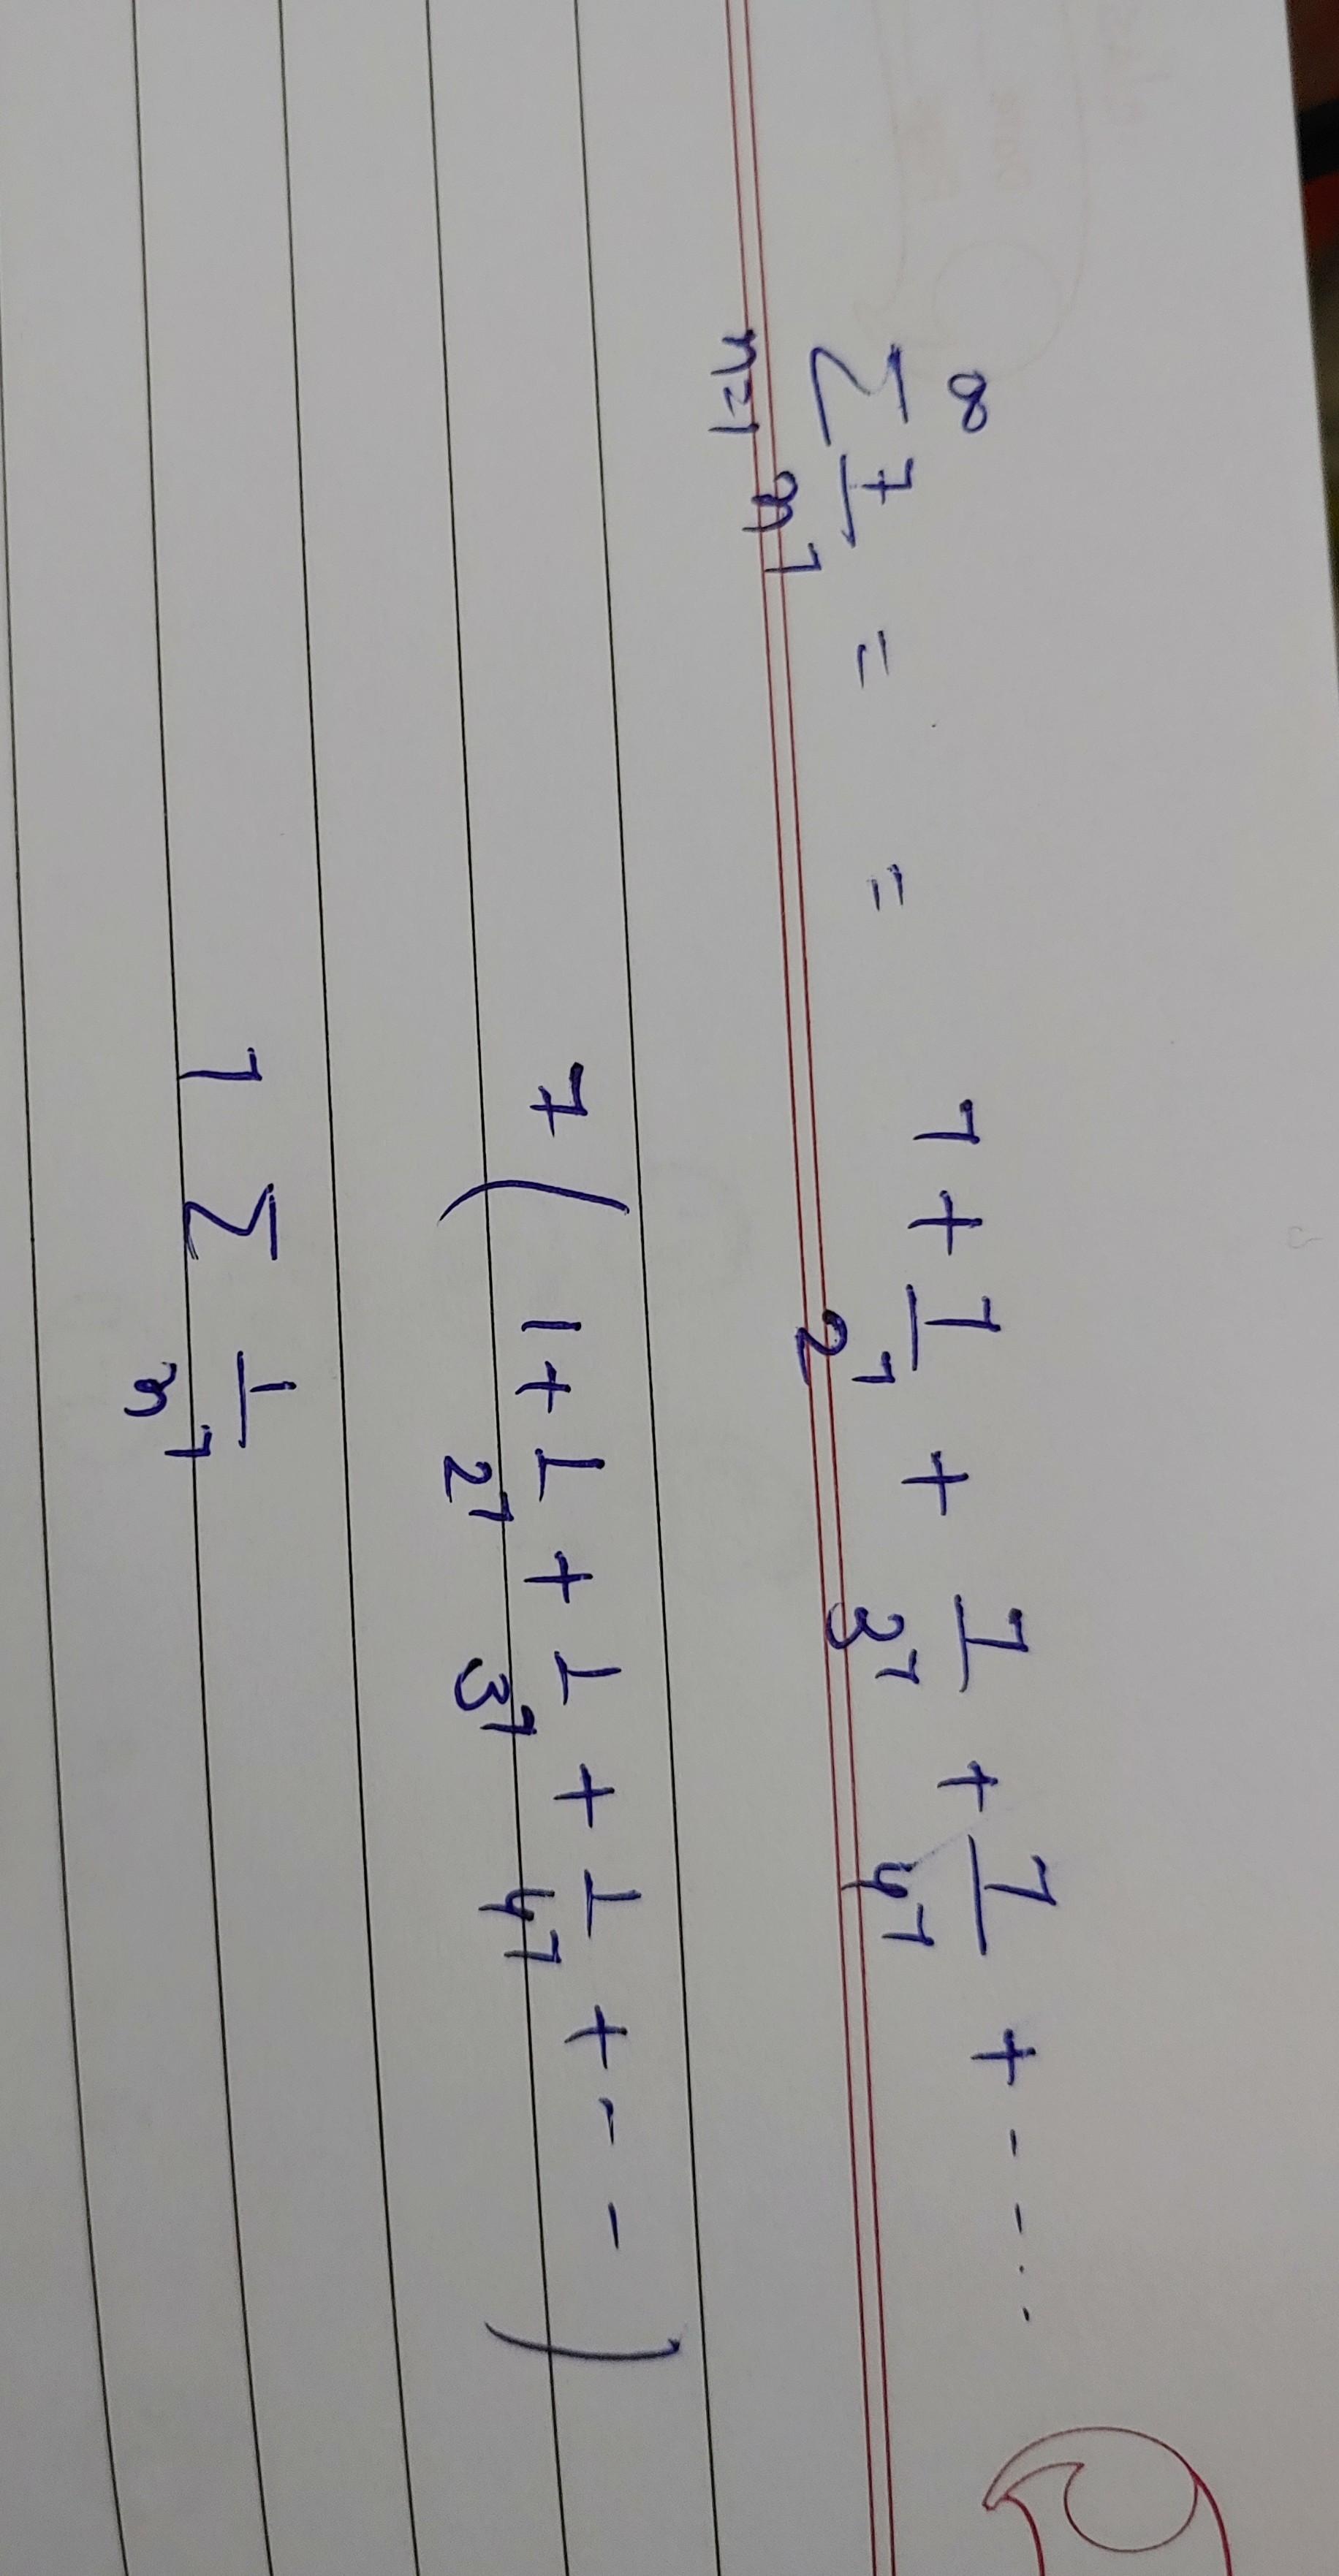 ∞
∑ 7/n⁷ = = 7 + 7/2⁷ + 7/3⁷ + 7/4⁷ + - - ...
n=1
7 ( 1 + 1/2⁷ + 1/3⁷ + 1/4⁷ + - - )
7 ∑ 1/n⁷